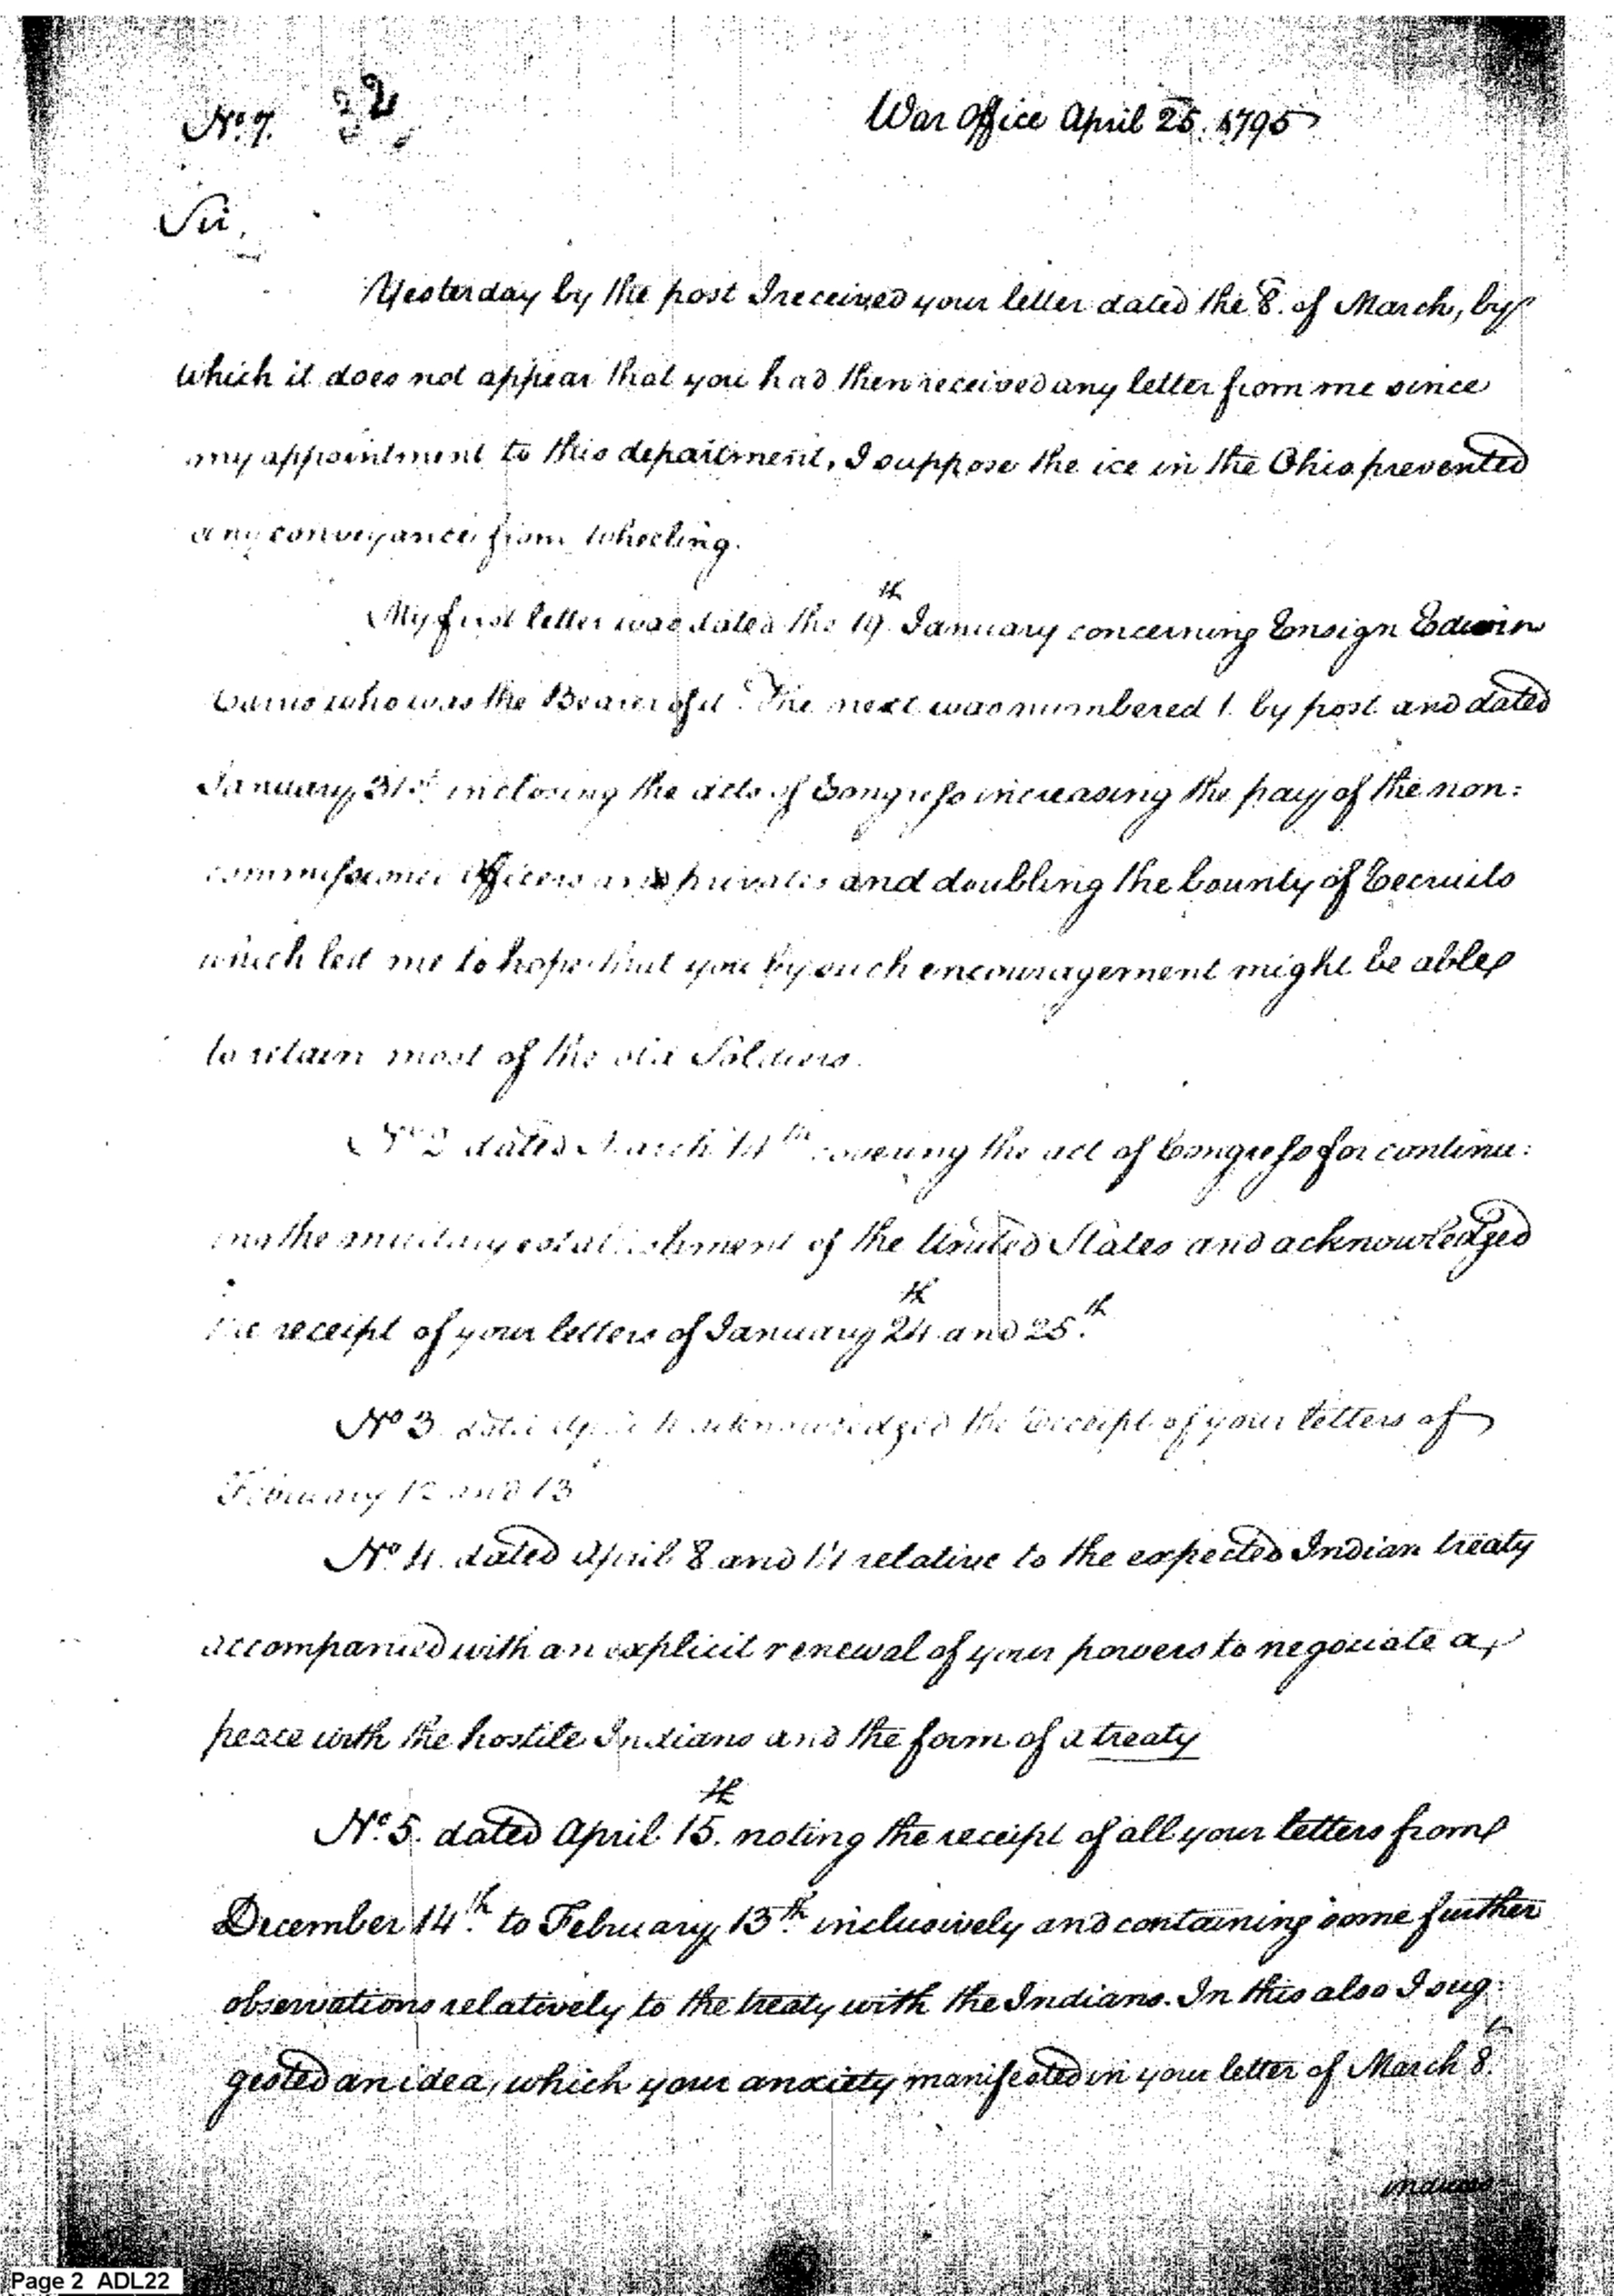 No. 7. 22 War Office April 25. 1795
Sir,
Yesterday by the post I received your letter dated the 8. of March, by
which it does not appear that you had then received any letter from me since
my appointment to this department, I suppose the ice in the Ohio prevented
any conveyance from Wheeling.
My first letter was dated the 19th January concerning Ensign Edwin
who was the Bearer of it. The next was numbered 1. by post and dated
January 31st inclosing the acts of Congress increasing the pay of the non:
commissioned officers and privates and doubling the bounty of Recruits
which led me to hope that you by such encouragement might be able
to retain most of the old Soldiers.
No 2 dated March 14th covering the act of Congress for continu:
ing the military establishment of the United States and acknowledged
the receipt of your letters of January 24th and 25th.
No 3. dated April acknowledged the receipt of your letters of
February 12 and 13
No. 4. dated April 8 and 14 relative to the expected Indian treaty
accompanied with an explicit renewal of your powers to negociate a
peace with the hostile Indians and the form of a treaty
No. 5. dated April 15th. noting the receipt of all your letters from
December 14th. to February 13th. inclusively and containing some further
observations relatively to the treaty with the Indians. In this also I sug:
gested an idea, which your anxiety manifested in your letter of March 8th.
induces
Page 2 ADL22